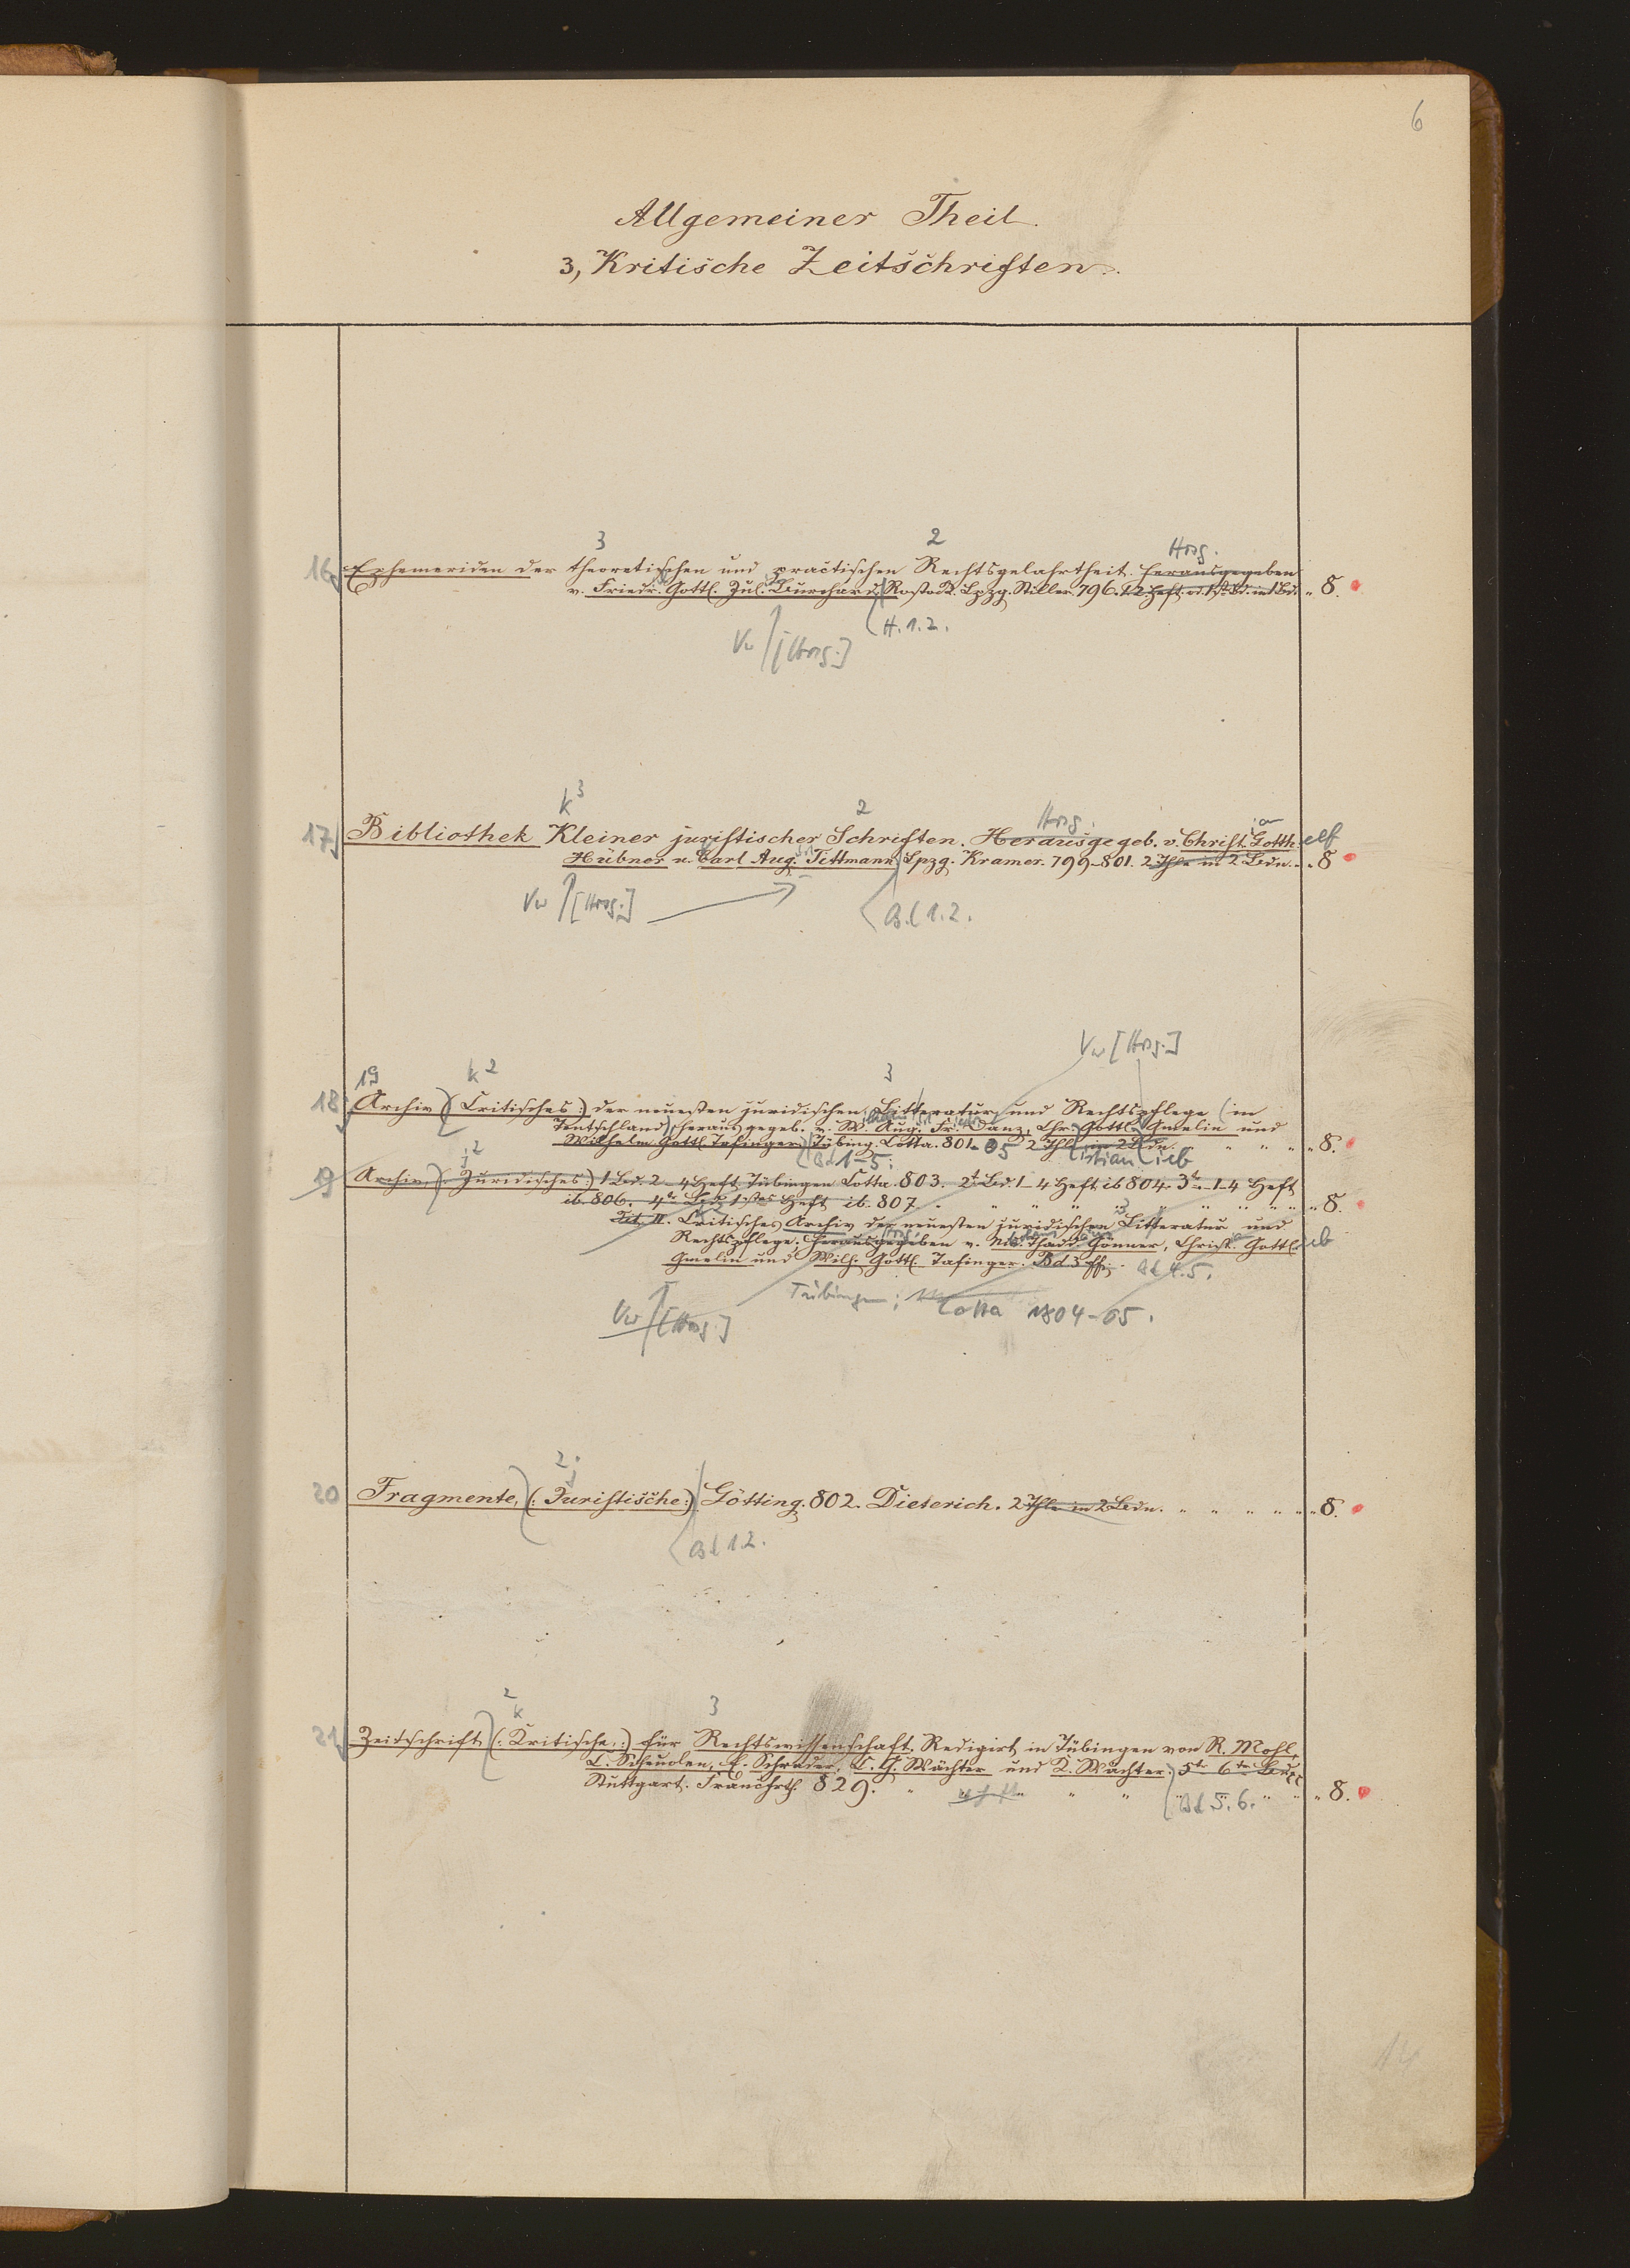 6
Allgemeiner Theil.
3, Kritische Zeitschriften.
3 2 Hrsg.
16 Ephemeriden der theoretischen und practischen Rechtsgelahrtheit. herausgegeben
v. Friedr. Gottl. Jul. Burchard. Rostock. Lpzg. Stiller. 796. 1. 2. Heft od. 1st. Bd. in 1 Bd. " 8.
H. 1. 2.
Vw [Hrsg.]
k 3 2 Hrsg. ian
17 Bibliothek Kleiner juristischer Schriften. Herausgegeb. v. Christ. Gotth. elf
Hübner u. Carl Aug. Tittmann Lpzg. Kramer. 799-801. 2 Thle in 2 Bdn. " 8
Vw [Hrsg.]
Bd 1. 2.
Vw [Hrsg.]
19 k 2 3
18 Archiv (: Critisches :) der neuesten juridischen Litteratur und Rechtspflege (im
Teutschland), herausgegeb. v. W. Aug. Fr. Danz, Chr. Gottl. Gmelin und
Wilhelm Gottl. Tafinger. Tübing. Cotta. 801-05 2 Thle in 2 Bdn. " " " " 8.
Bd 1-5; istian ieb
j 2
19 Archiv, (: Juridisches :) 1 Bd. 2-4 Heft Tübingen Cotta. 803. 2t. Bd. 1-4 Heft. ib 804. 3t. 1-4 Heft
ib. 806. 4tr Bds 1stes Heft ib. 807. " " " " " " " " 8.
Tit. II. Critisches Archiv der neuesten juridischen Litteratur und
Rechtspflege. Herausgegeben v. Nic. Thadd. Gönner, Christ. Gottl. ieb
Gmelin und Wilh. Gottl. Tafinger. Bd 3 ff. Bd 4. 5.
Tübingen; Cotta 1804-05.
Vw [Hrsg.]
2 j
20 Fragmente, (: Juristische :) Götting. 802. Dieterich. 2 Thle in 2 Bdn. " " " " " 8.
Bd 1. 2.
2 k 3
21 Zeitschrift (: Kritische :) für Rechtswissenschaft. Redigirt in Tübingen von R. Mohl,
C. Scheurlen, E. Schrader, C. G. Wächter und K. Wächter. 5tr 6tr Bd
Stuttgart. Franckh. 829. " " " " 8.
Bd 5. 6.
14